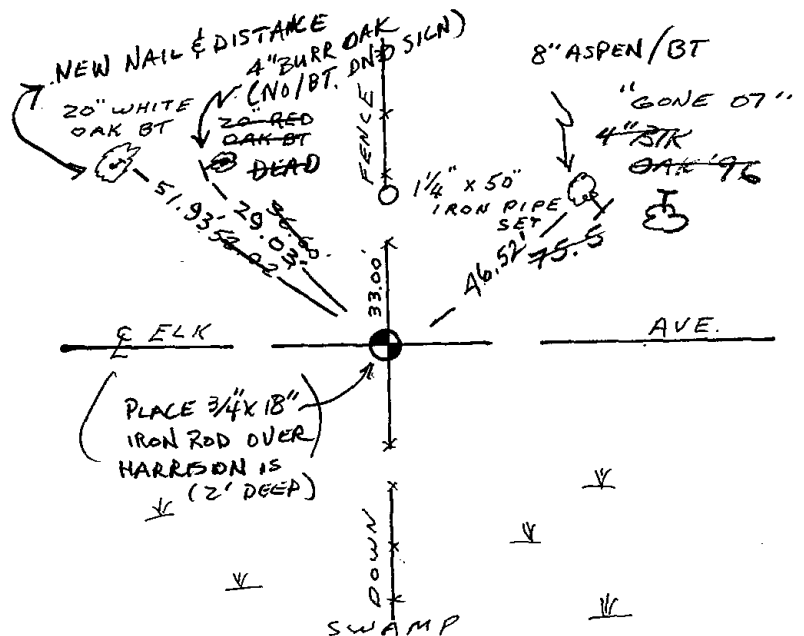 NEW NAIL & DISTANCE
4" BURR OAK
(NO/BT. DND SIGN)
20" WHITE
OAK BT
20" RED
OAK BT
DEAD
FENCE
8" ASPEN/BT
"GONE 07"
4" BTK
OAK '96
1¼" X 50"
IRON PIPE
SET
51.93'
29.03'
33.00'
46.52'
75.5
℄ ELK
AVE.
PLACE 3/4" X 18"
IRON ROD OVER
HARRISON IS
(2' DEEP)
DOWN
SWAMP